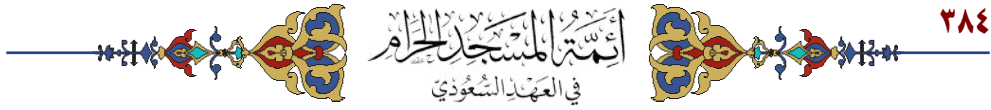 ٣٨٤
أئمة المسجد الحرام
في العهد السعودي